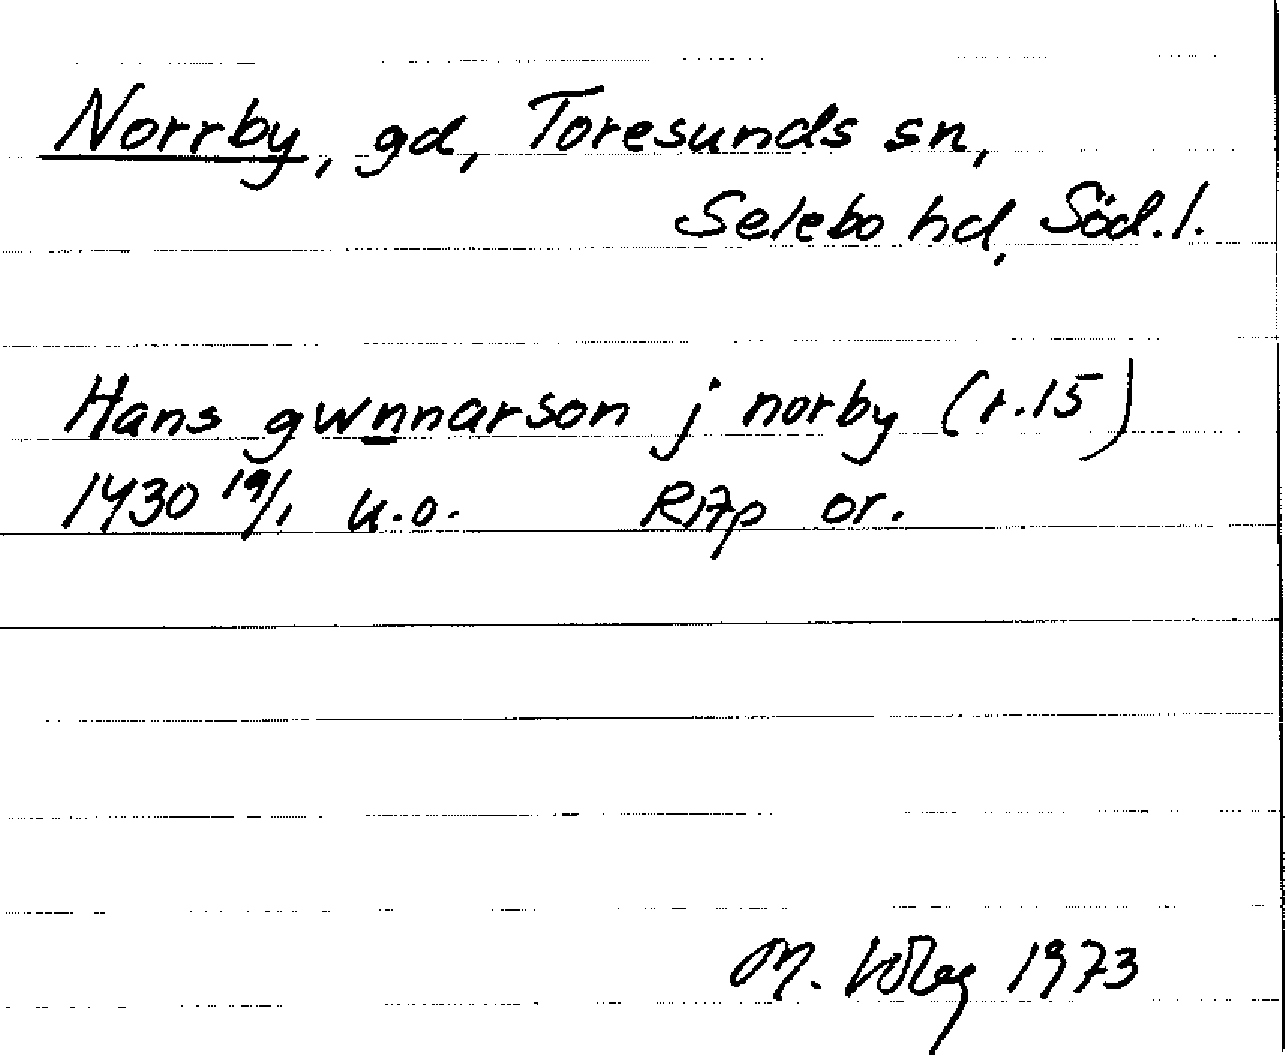 Norrby, gd, Toresunds sn,
Selebo hd, Söd.l.
Hans gwnnarson j norby (r.15)
1430 19/1 u.o. RAp or.
M. 1973